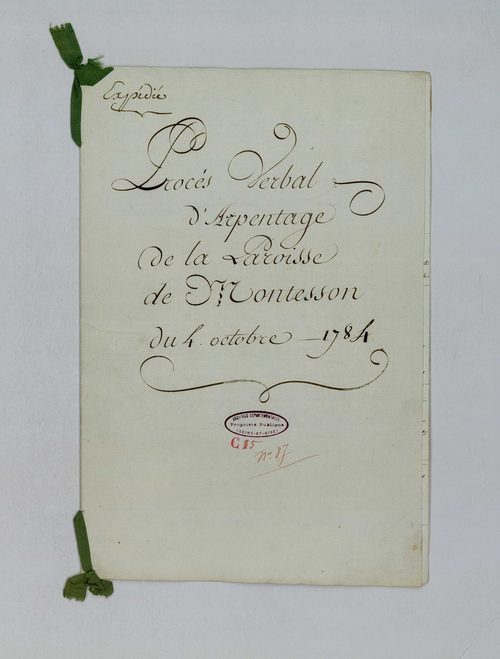 Expédié
Procés Verbal
d'Arpentage
de la Paroisse
de Montesson
du 4. octobre 1784.
ARCHIVES DÉPARTEMENTALES
Propriété Publique
(SEINE-ET-OISE)
C